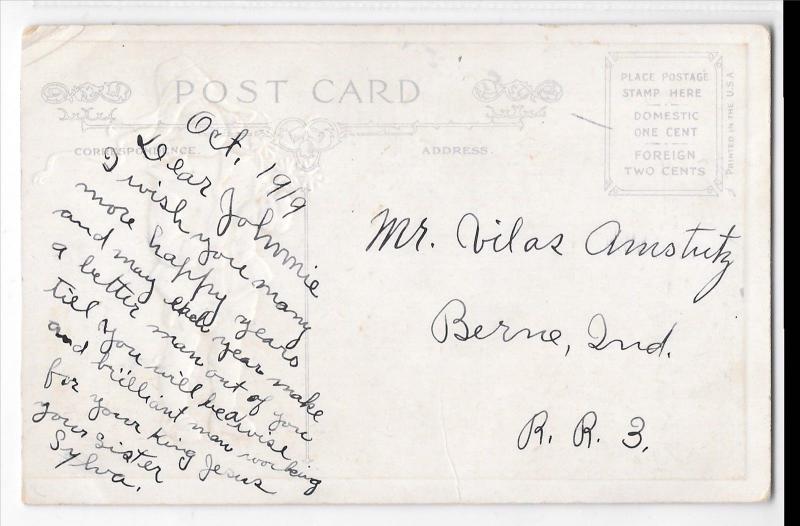 POST CARD
CORRESPONDENCE.
ADDRESS.
PLACE POSTAGE
STAMP HERE
DOMESTIC
ONE CENT
FOREIGN
TWO CENTS
PRINTED IN THE U.S.A
Oct, 1919
Dear Johnnie
I wish you many
more happy years
and may each year make
a better man out of you
till you will be a wise
and brilliant man working
for your king Jesus
your sister
Sylva.
Mr. Vilas Amstutz
Berne, Ind.
R. R. 3.